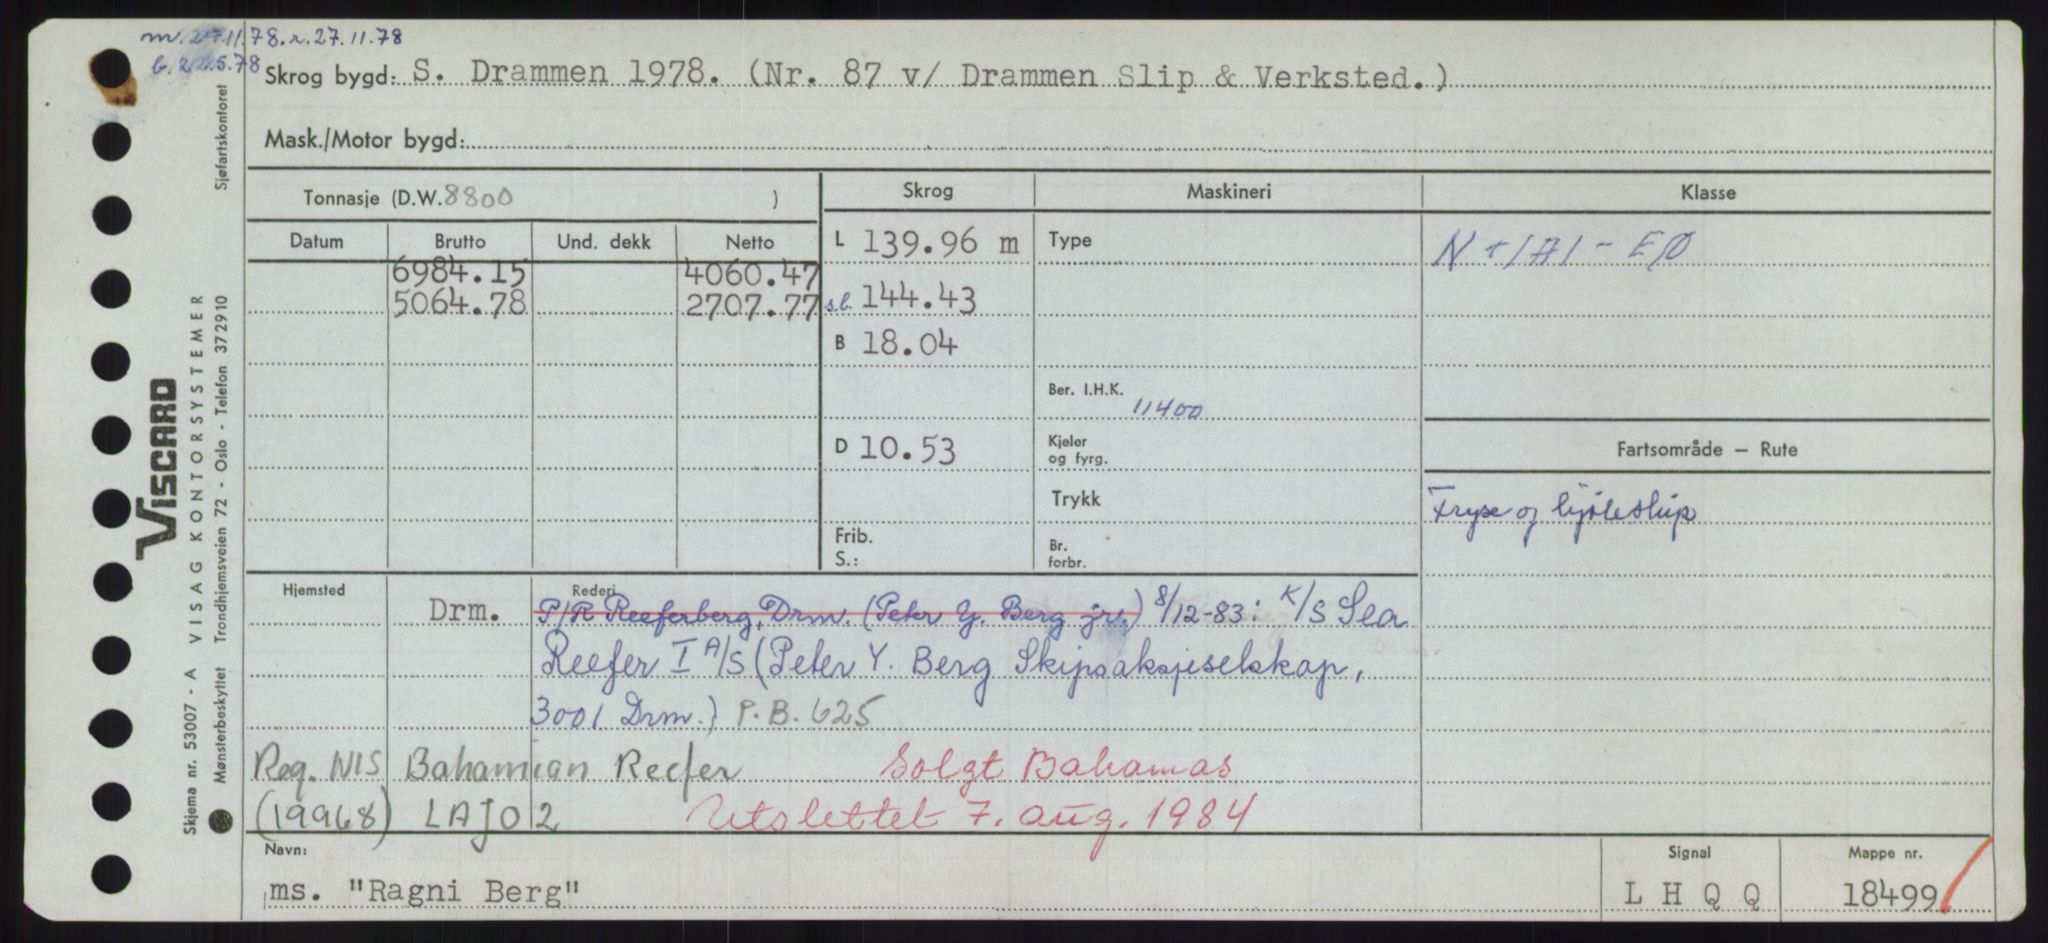 m. 27.11.78. r. 27.11.78
b. 22.5.78
Skrog bygd: S. Drammen 1978. (Nr. 87 v/ Drammen Slip & Verksted.)
Mask./Motor bygd:
Tonnasje (D.W. 8800 )
Skrog
Maskineri
Klasse
Datum
Brutto
Und. dekk
Netto
6984.15
4060.47
5064.78
2707.77
L 139.96 m
s.l. 144.43
B 18.04
D 10.53
Frib.
S.:
Type
Ber. I.H.K. 11400
Kjeler
og fyrg.
Trykk
Br.
forbr.
N +1A1 - EØ
Fartsområde — Rute
Fryse og kjøleskip
Hjemsted
Rederi
Drm.
P/R Reeferberg, Drm. (Peter Y. Berg jr.) 8/12-83: K/S Sea
Reefer I A/S (Peter Y. Berg Skipsaksjeselskap,
3001 Drm.) P.B. 625
Reg. NIS Bahamian Reefer
Solgt Bahamas
(19968) LAJO2
Utslettet 7. aug. 1984
Navn:
ms. "Ragni Berg"
Signal
L H Q Q
Mappe nr.
18499
Viscard
VISAG KONTORSYSTEMER
Skjema nr. 53007 - A
Mønsterbeskyttet
Trondhjemsveien 72 - Oslo - Telefon 372910
Sjøfartskontoret